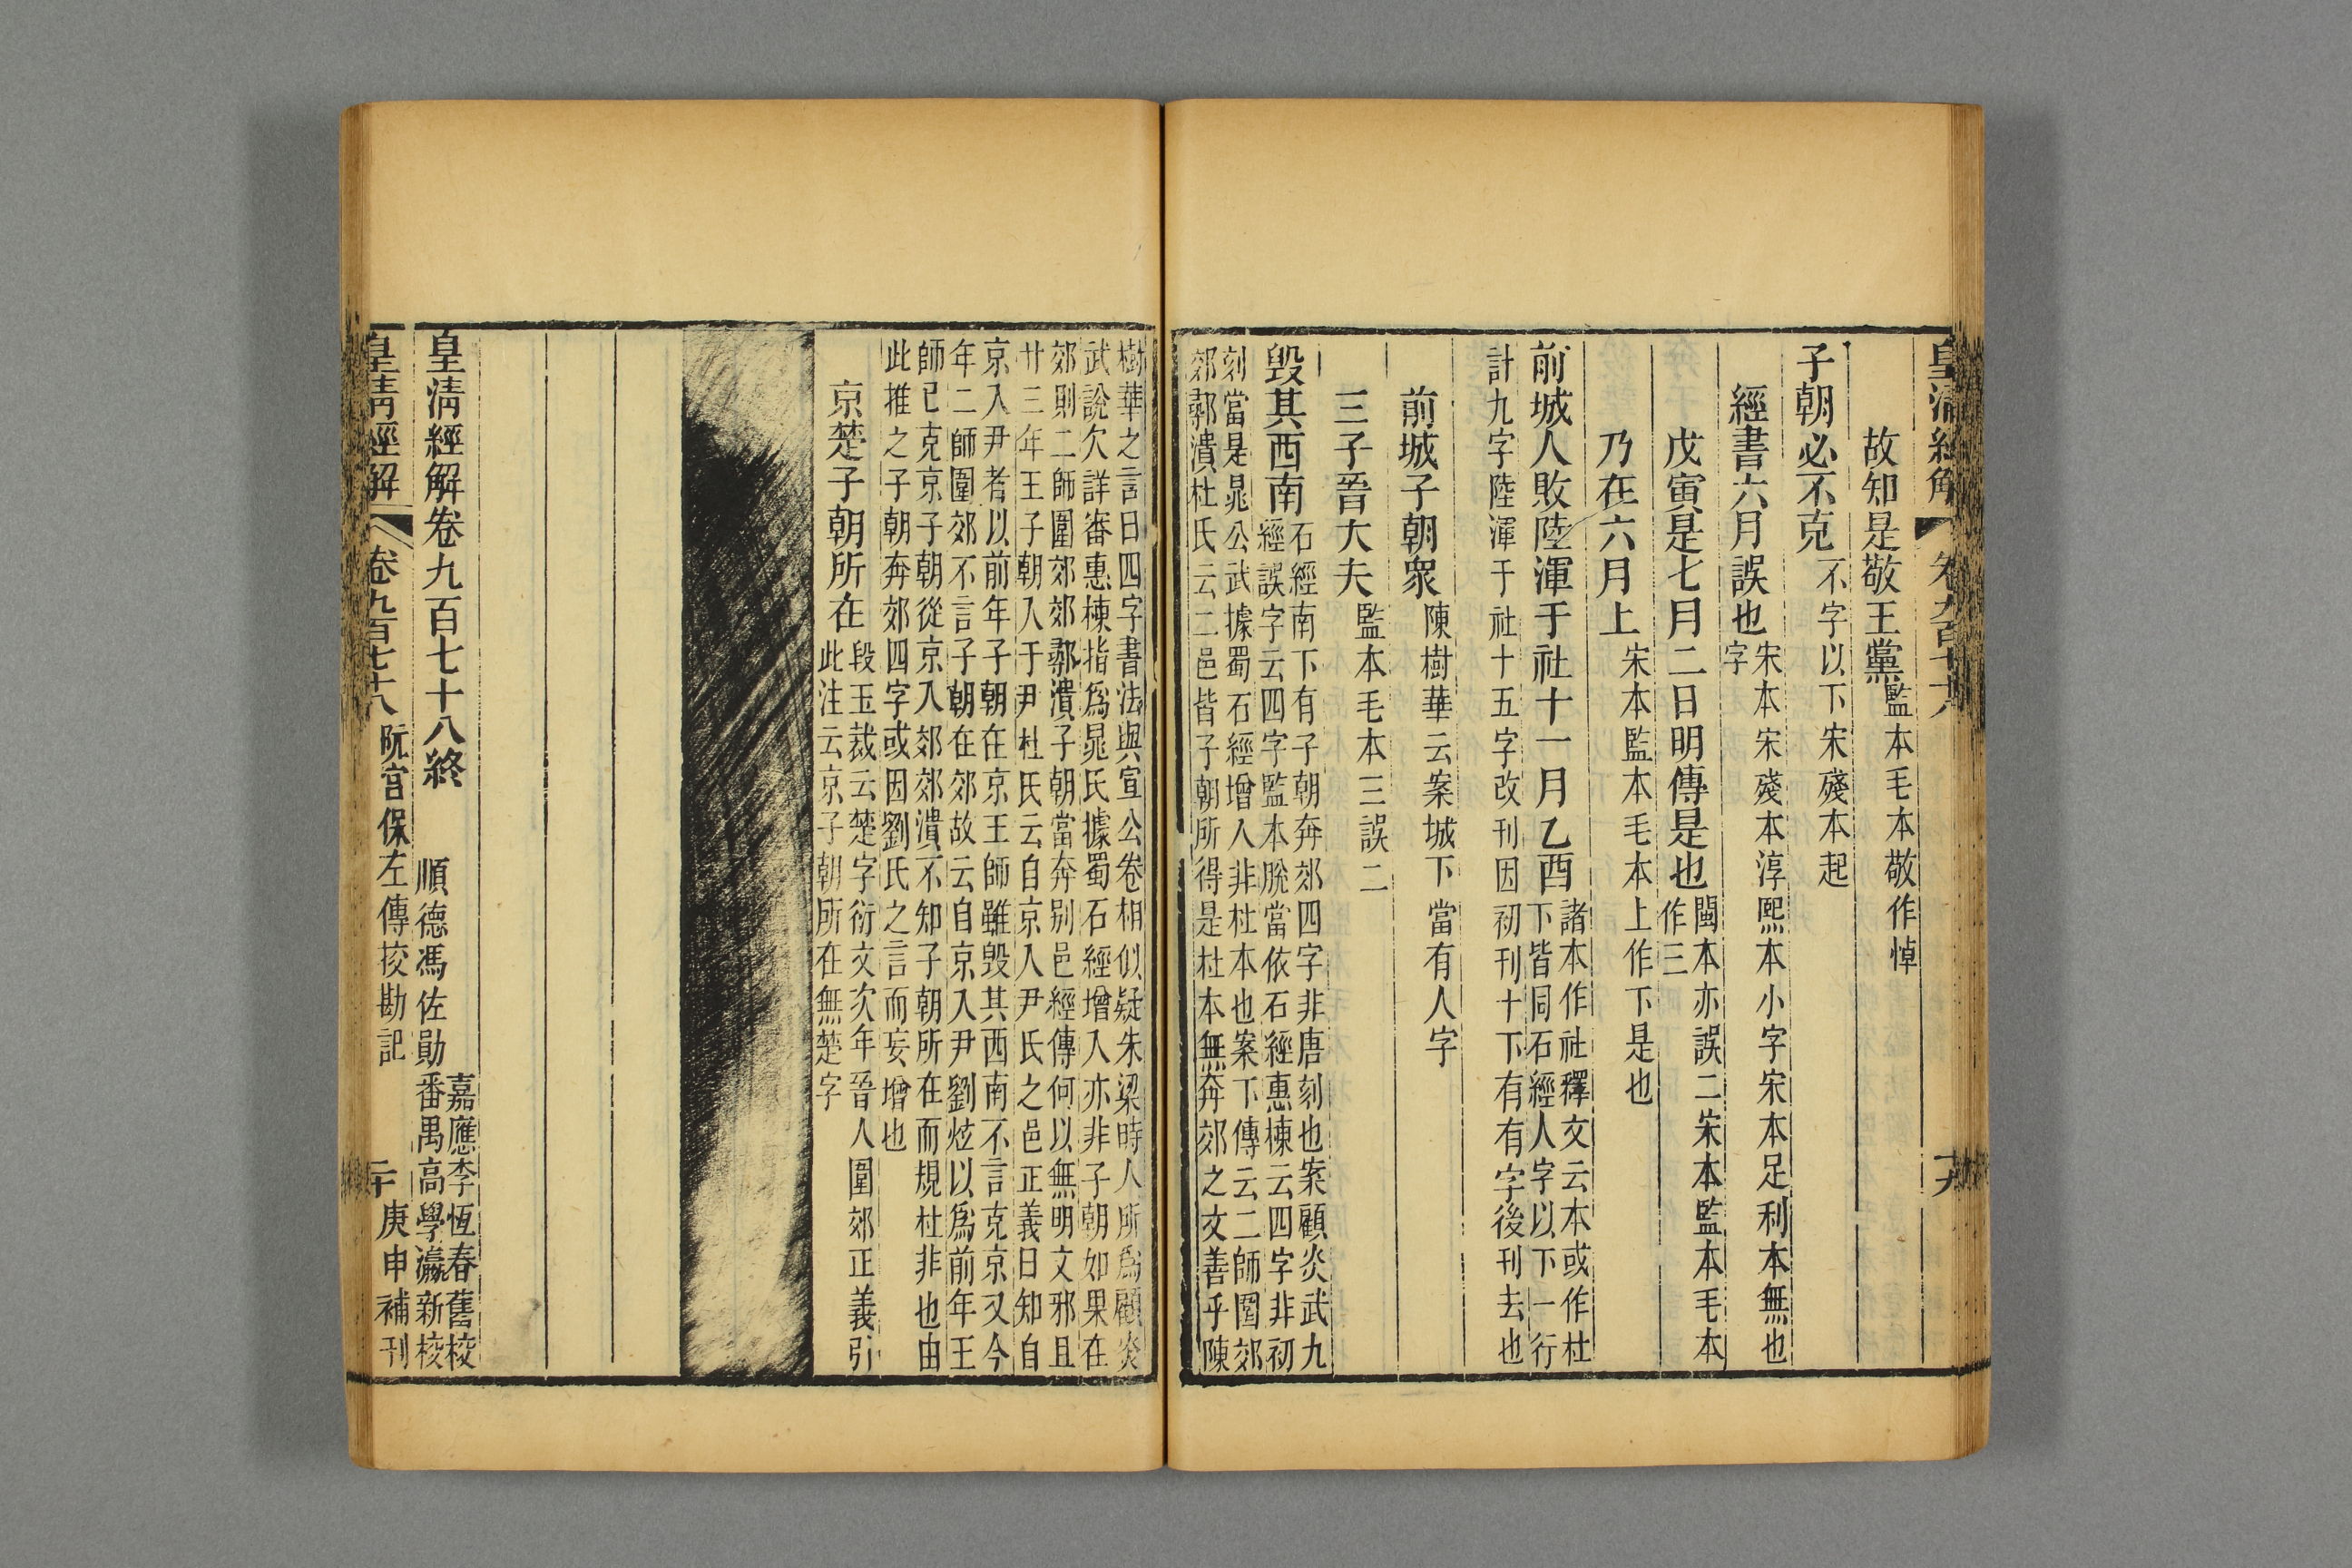 皇清經解 卷九百七十八 十九
故知是敬王黨監本毛本敬作悼
子朝必不克不字以下宋殘本起
經書六月誤也宋本宋殘本淳熙本小字宋本足利本無也
字
戊寅是七月二日明傳是也閩本亦誤二宋本監本毛本
作三
乃在六月上宋本監本毛本上作下是也
前城人敗陸渾于社十一月乙酉諸本作社釋文云本或作杜
下皆同石經人字以下一行
計九字陸渾于社十五字改刊因初刊十下有有字後刊去也
前城子朝衆陳樹華云案城下當有人字
三子晉大夫監本毛本三誤二
毀其西南石經南下有子朝奔郊四字非唐刻也案顧炎武九
經誤字云四字監本脫當依石經惠棟云四字非初
刻當是晁公武據蜀石經增入非杜本也案下傳云二師圍郊
郊鄩潰杜氏云二邑皆子朝所得是杜本無奔郊之文善乎陳
樹華之言曰四字書法與宣公卷相似疑朱梁時人所爲顧炎
武說欠詳審惠棟指爲晁氏據蜀石經增入亦非子朝如果在
郊則二師圍郊郊鄩潰子朝當奔别邑經傳何以無明文邪且
廿三年王子朝入于尹杜氏云自京入尹氏之邑正義曰知自
京入尹者以前年子朝在京王師雖毀其西南不言克京又今
年二師圍郊不言子朝在郊故云自京入尹劉炫以爲前年王
師已克京子朝從京入郊郊潰不知子朝所在而規杜非也由
此推之子朝奔郊四字或因劉氏之言而妄增也
京楚子朝所在段玉裁云楚字衍文次年晉人圍郊正義引
此注云京子朝所在無楚字
皇清經解卷九百七十八終
嘉應李恆春舊校
順德馮佐勛番禺高學瀛新校
皇清經解 卷九百七十八 阮宮保左傳挍勘記 二十 庚申補刊